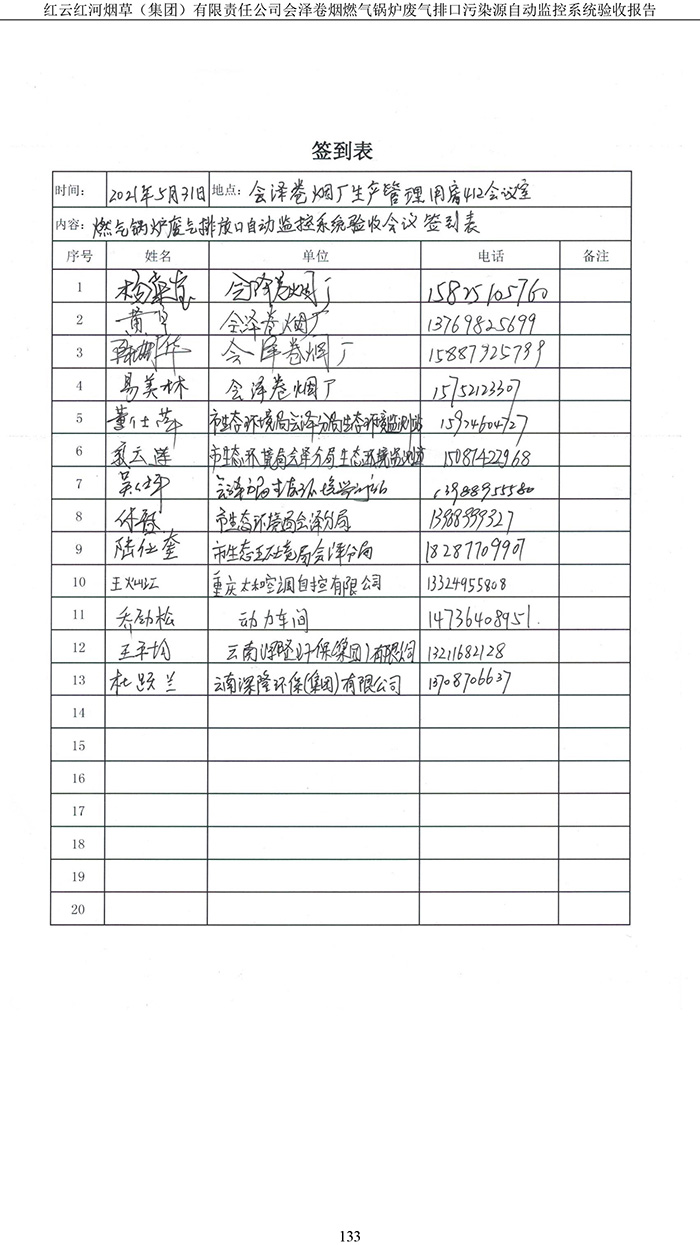 红云红河烟草（集团）有限责任公司会泽卷烟燃气锅炉废气排口污染源自动监控系统验收报告
签到表
时间： 2021年5月31日 地点： 会泽卷烟厂生产管理用房412会议室
内容： 燃气锅炉废气排放口自动监控系统验收会议签到表
序号 姓名 单位 电话 备注
1 会泽卷烟厂 15825105760
2 黄 会泽卷烟厂 13769825699
3 会泽卷烟厂
4 易美林 会泽卷烟厂 15752123307
5 董仕萍 市生态环境局会泽分局生态环境监测站 15924604727
6 云 市生态环境局会泽分局生态环境监测站 15087422968
7 吴仕坪
8 市生态环境局会泽分局
9 陆仕奎 市生态环境局会泽分局 18287709907
10 王 重庆太和空调自控有限公司 13324955808
11 乔劲松 动力车间 14736408951
12 王 云南深隆环保(集团)有限公司 13211682128
13 杜 兰 云南深隆环保(集团)有限公司 13708706637
14
15
16
17
18
19
20
133